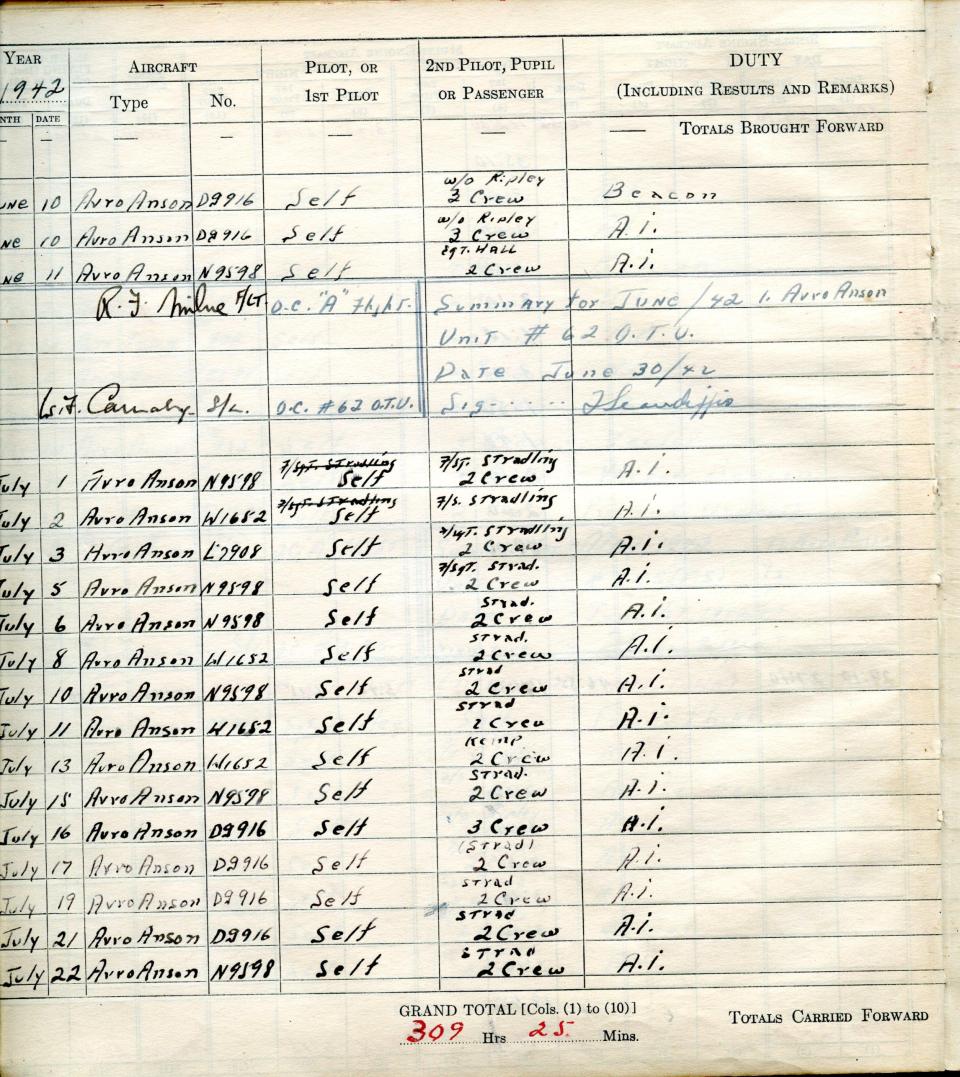 YEAR AIRCRAFT PILOT, OR 2ND PILOT, PUPIL DUTY
1942 Type No. 1ST PILOT OR PASSENGER (INCLUDING RESULTS AND REMARKS)
NTH DATE
— — — — — — — TOTALS BROUGHT FORWARD
w/o Ripley
une 10 Avro Anson DG916 Self 3 Crew Beacon
w/o Ripley
ne 10 Avro Anson DG916 Self 3 Crew A.i.
Sgt. HALL
ne 11 Avro Anson N9598 Self 2 Crew A.i.
R. F. Milne F/LT. O.C. "A" Flight. Summary for JUNE/42 1. Avro Anson
Unit # 62 O.T.U.
Date June 30/42
Carnaby S/L. O.C. #62 O.T.U. Sig.
F/Sgt. Stradling F/ST. Stradling
July 1 Avro Anson N9598 Self 2 Crew A.i.
F/Sgt. Stradling F/S. Stradling
July 2 Avro Anson W1652 Self A.i.
F/Sgt. Stradling
July 3 Avro Anson L7908 Self 2 Crew A.i.
F/Sgt. Strad.
July 5 Avro Anson N9598 Self 2 Crew A.i.
Strad.
July 6 Avro Anson N9598 Self 2 Crew A.i.
Strad.
July 8 Avro Anson W1652 Self 2 Crew A.i.
Strad
July 10 Avro Anson N9598 Self 2 Crew A.i.
Strad
July 11 Avro Anson W1652 Self 2 Crew A.i.
Kemp
July 13 Avro Anson W1652 Self 2 Crew A.i.
Strad.
July 15 Avro Anson N9598 Self 2 Crew A.i.
July 16 Avro Anson DG916 Self 3 Crew A.i.
(Strad)
July 17 Avro Anson DG916 Self 2 Crew A.i.
Strad
July 19 Avro Anson DG916 Self 2 Crew A.i.
Strad
July 21 Avro Anson DG916 Self 2 Crew A.i.
Strad
July 22 Avro Anson N9598 Self 2 Crew A.i.
GRAND TOTAL [Cols. (1) to (10)] TOTALS CARRIED FORWARD
309 Hrs 25 Mins.